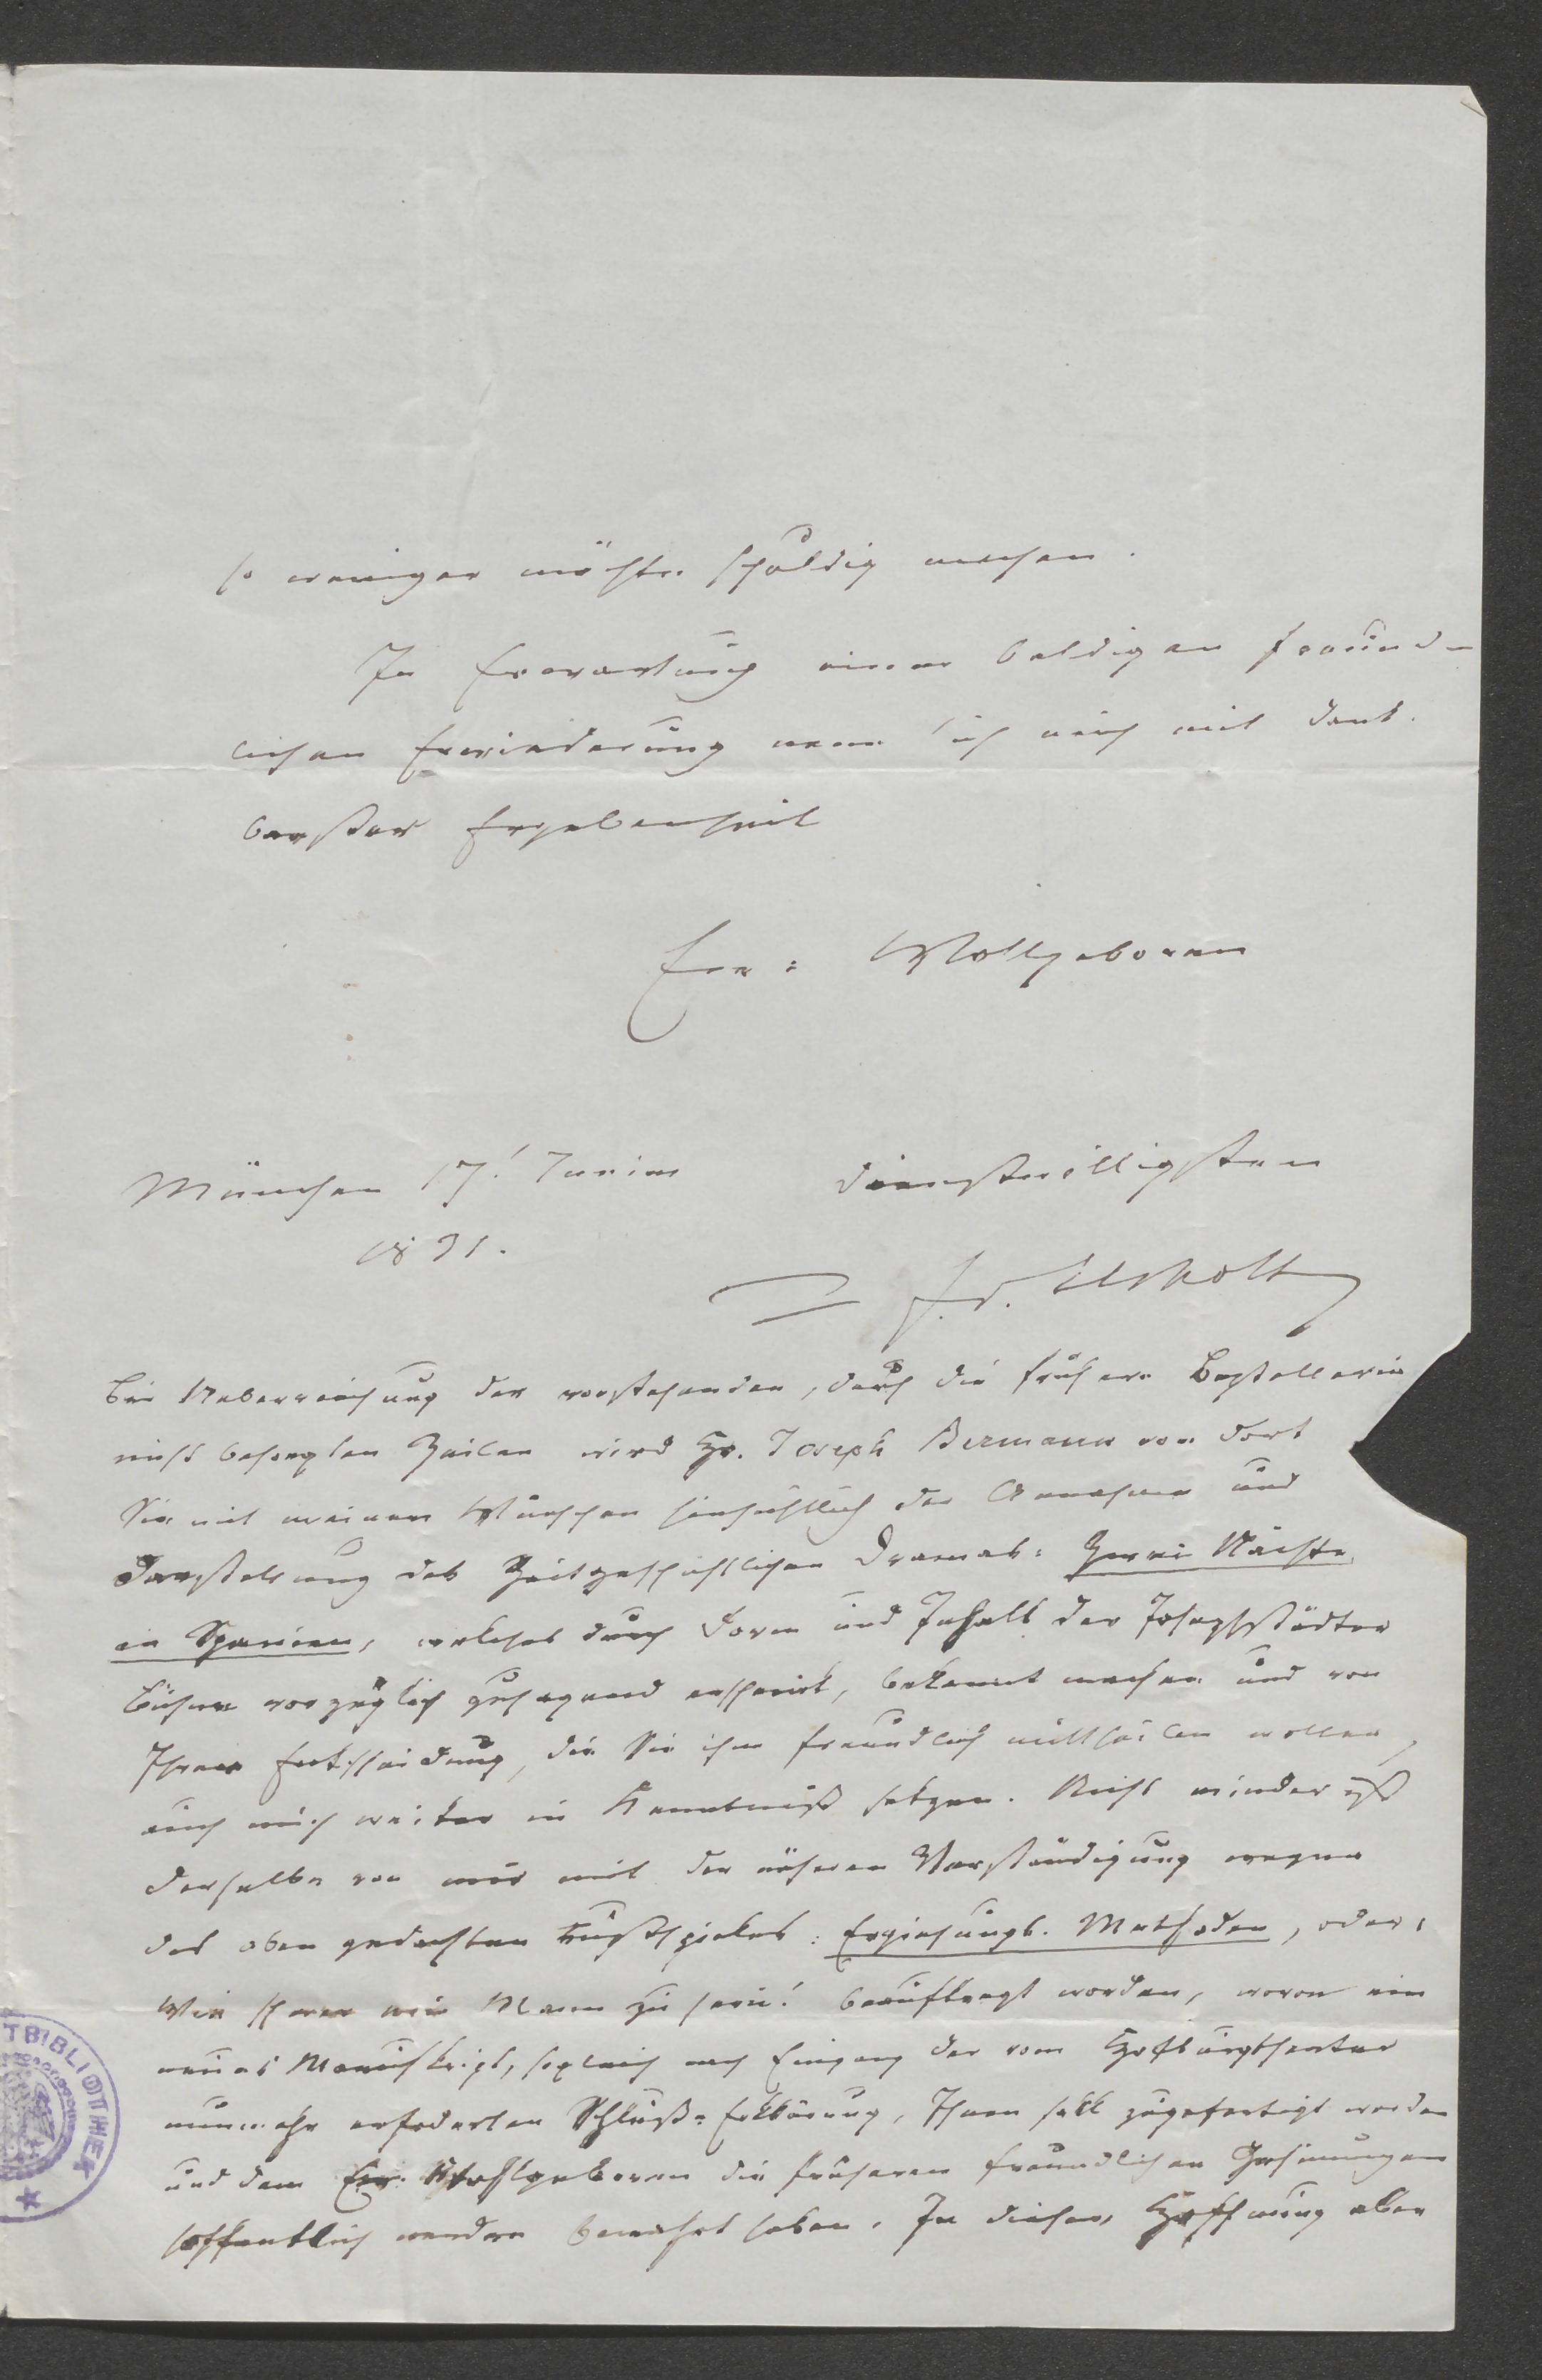 so weniger möchte schuldig machen.
In Erwartung einer baldigen freund-
lichen Erwiederung nenne ich mich mit dank-
barster Ergebenheit
Euer: Wollgeboren
München 17! Junius
dienstwilligsten
1831.
F. v. Elsholtz
Bei Ueberreichung der vorstehenden, durch die frühere Bestellerin
nicht besorgten Zeilen wird Hr. Joseph Bermann von dort
Sie mit meinen Wünschen hinsichtlich der Annahme und
Darstellung des Zeitgeschichtlichen Dramas: Zwei Nächte
in Spanien, welches durch Form und Inhalt der Josephstädter
Bühne vorzüglich zusagend erscheint, bekannt machen und von
Ihrer Entscheidung, die Sie ihm freundlich mittheilen wollen,
auch mich weiter in Kenntniß setzen. Nicht minder ist
derselbe von mir mit der näheren Verständigung wegen
des oben gedachten Lustspieles: Erziehungs-Methoden, oder:
Wie schwer ein Mann zu sein! beauftragt worden, wovon ein
neues Manuskript, sogleich nach Eingang der vom Hofburgtheater
nunmehr erforderten Schluß-Erklärung, Ihnen soll zugefertigt werden
und dem Ew. Wohlgeboren die früheren freundlichen Gesinnungen
hoffentlich werden bewahrt haben. In dieser Hoffnung aber
TBIBLIOTHEK